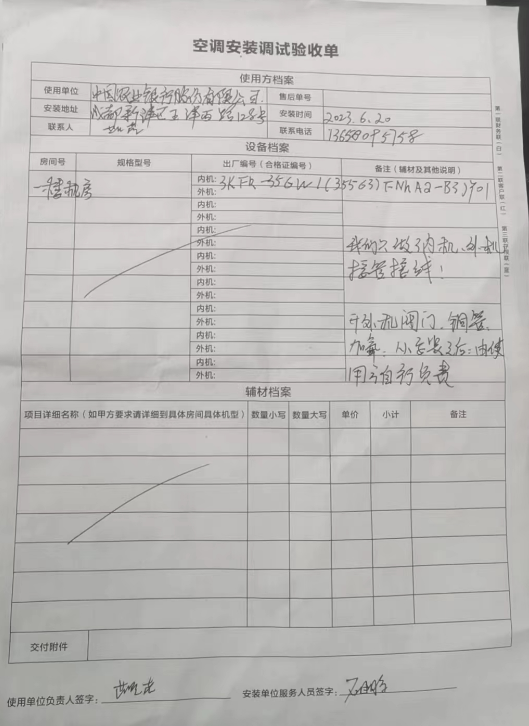 空调安装调试验收单
使用方档案
使用单位 中国农业银行股份有限公司 售后单号
安装地址 成都新津区五津西路128号 安装时间 2023.6.20
联系人 联系电话 13658095758
设备档案
房间号 规格型号 出厂编号（合格证编号） 备注（辅材及其他说明）
一楼机房 内机: 3KFR-35GW/(35563)FNhAa-B3)
外机:
内机:
外机:
内机:
外机: 我们只做了内机、外机
内机: 接管接线！
外机:
内机:
外机:
内机: 开外机阀门、铜管、
外机:
内机: 加氟、从安装之后:由使
外机:
内机: 用方自行负责
外机:
辅材档案
项目详细名称（如甲方要求请详细到具体房间具体机型） 数量小写 数量大写 单价 小计 备注
交付附件
使用单位负责人签字: 安装单位服务人员签字:
第一联财务联（白） 第二联客户联（红） 第三联存档联（蓝）